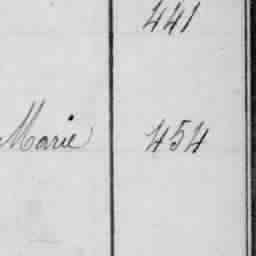 441
Marie 454